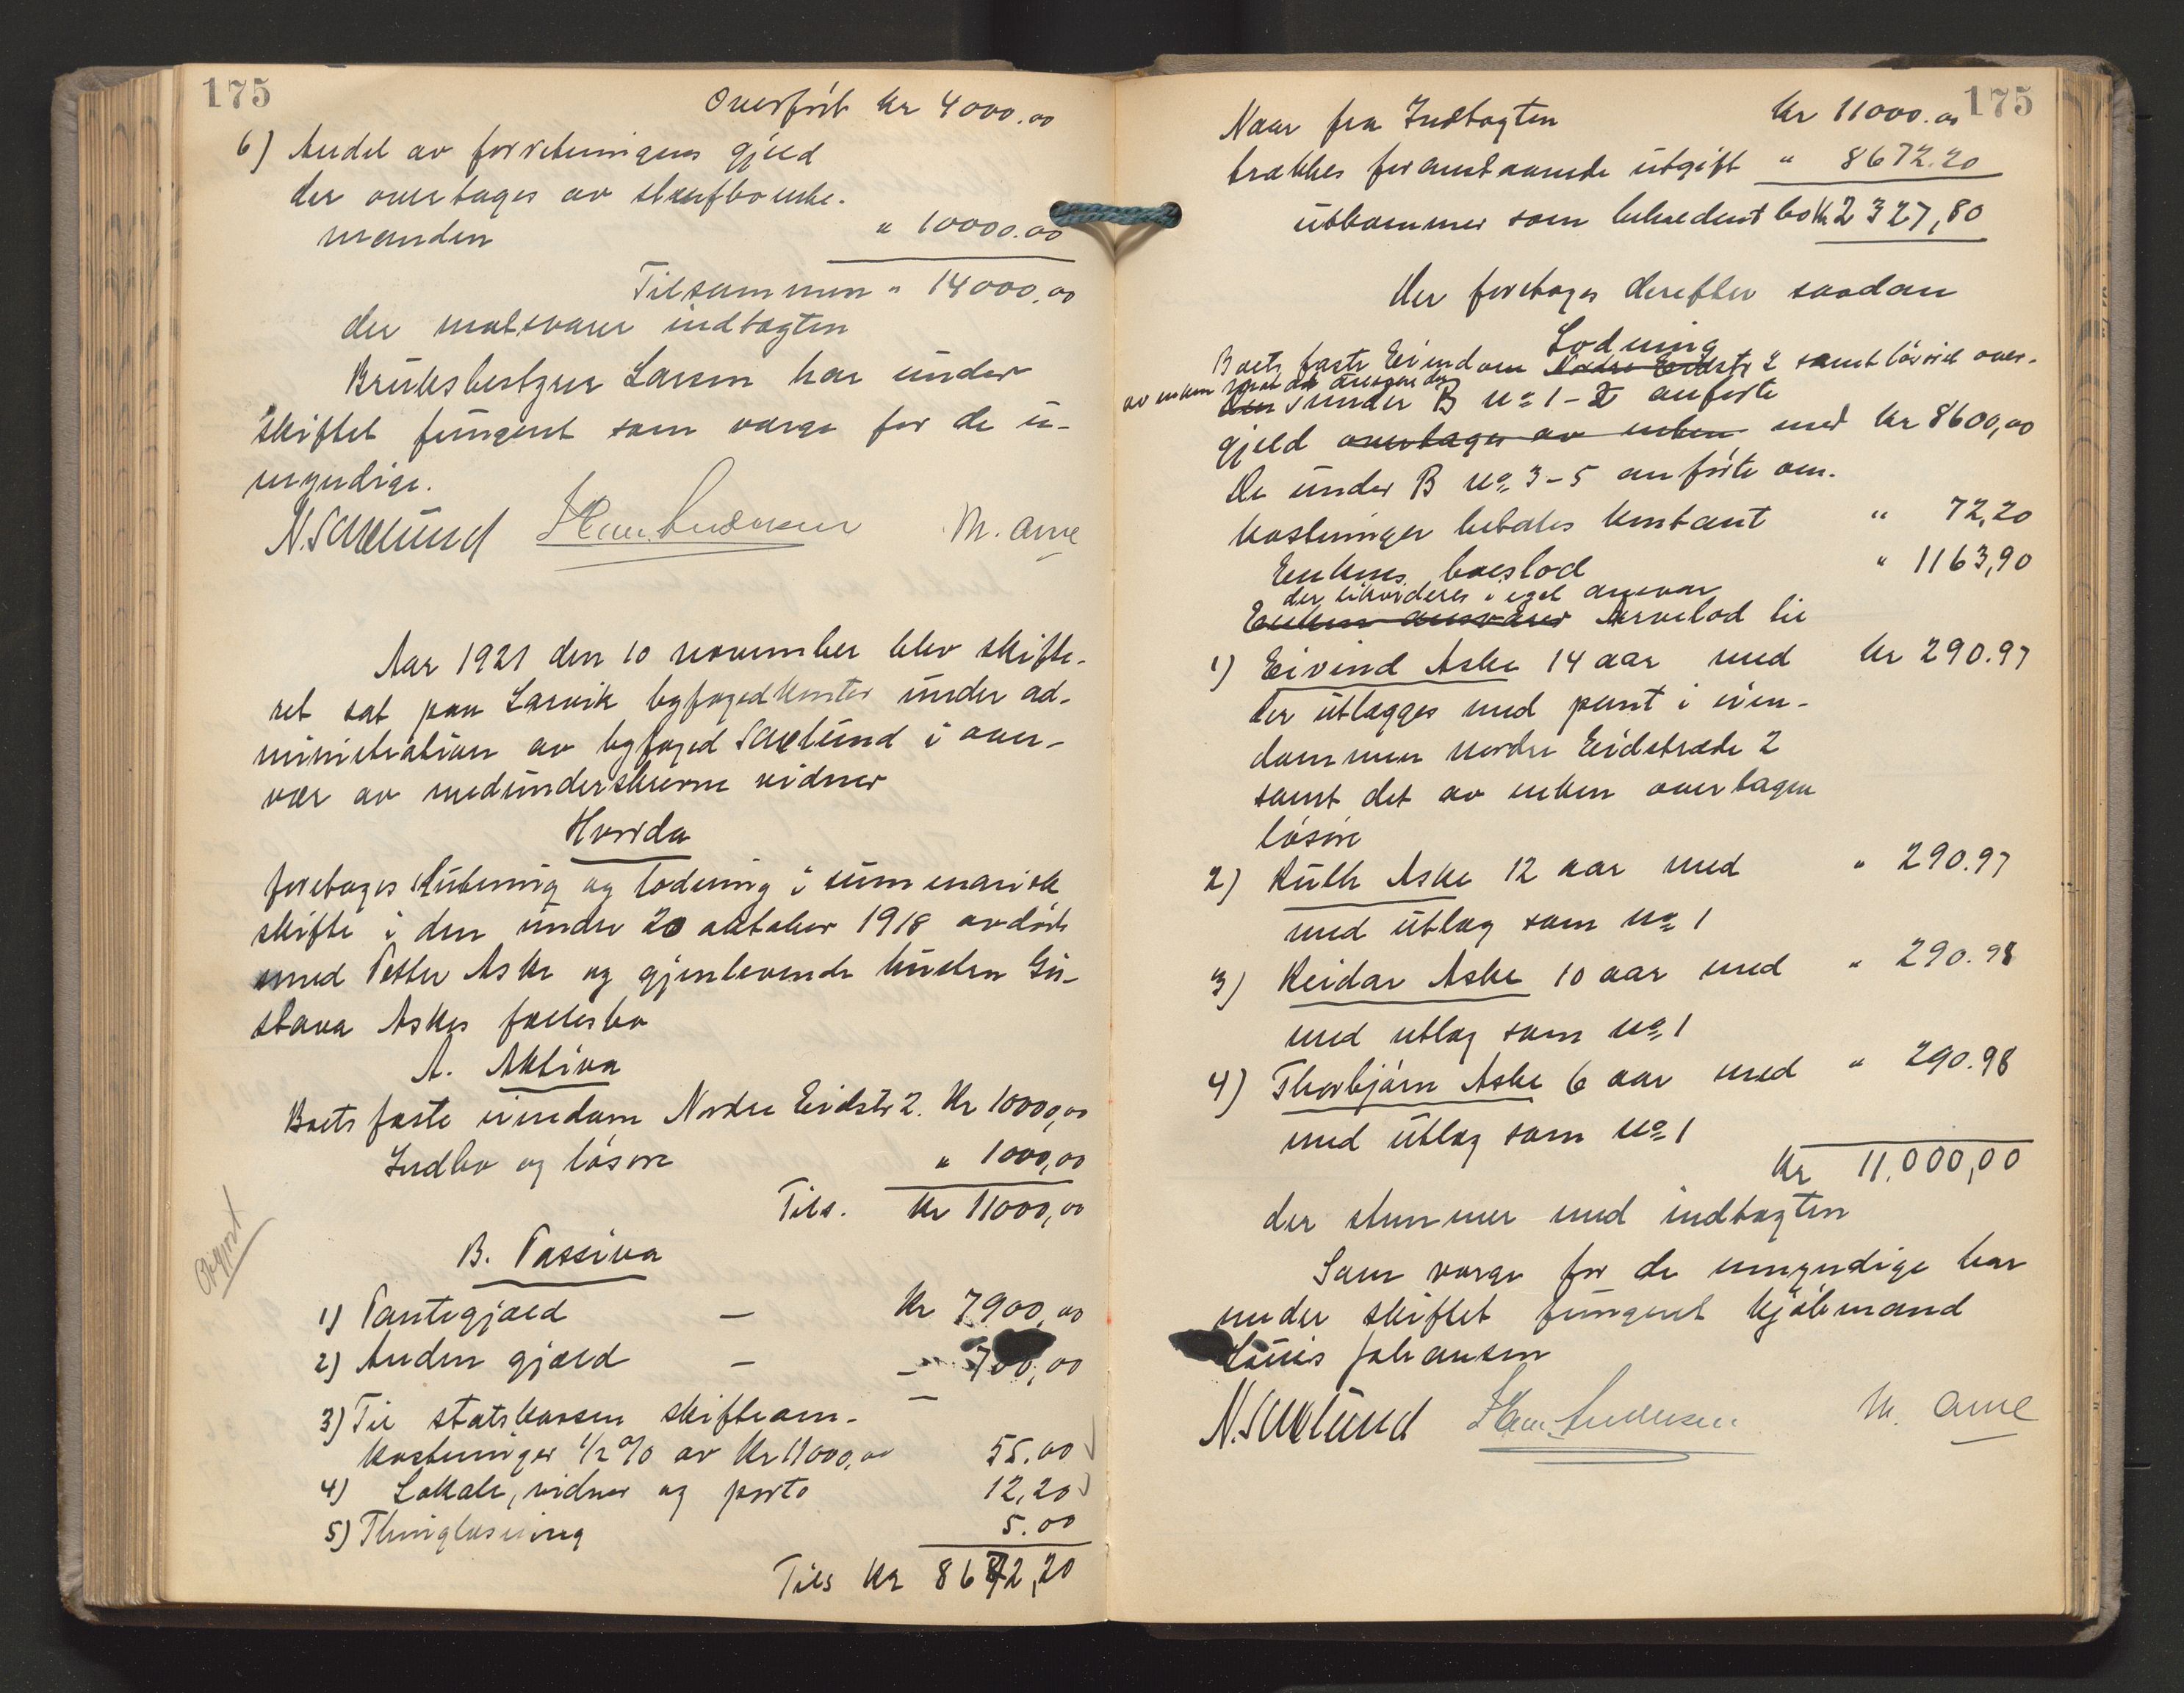 175
Overført kr 4000.00
6) Andel av forretningens gjeld
der overtages av
manden " 10000.00
Tilsammen " 14000.00
der modsvarer indtægten
Bruksbestyrer Larsen har under
skiftet fungeret som værge for de u-
myndige.
N. Saxlund M. Arne
Aar 1921 den 10 november blev skifte-
ret sat paa Larvik byfogedkontor under ad-
ministration av byfoged Saxlund i over-
vær av medunderskrevne vidner
Hvorda
foretages slutning og lodning i summarisk
skifte i den under 20 oktober 1918 avdøde
mand Petter Aske og gjenlevende hustru Gu-
stava Askes fællesbo
A. Aktiva
Boets faste eiendom Nordre Eidstr 2. Kr 10000,00
Indbo og løsøre " 1000,00
Tils. Kr 11000,00
Opgjort
B. Passiva
1) Pantegjæld — Kr 7900,00
2) Anden gjæld — - 700,00
3) Til statskassen skifteom-
kostninger 1/2 % av Kr 11000,00 55.00
4) Lokale, vidner og porto 12,20
5) Thinglæsning 5.00
Tils Kr 8672,20
175
Naar fra Indtægten kr 11000.00
trækkes foranstaaende utgift " 8672.20
utkommer som beholdent bo Kr 2327,80
Der foretages derefter saadan
Lodning
Boets faste Eiendom Nordre Eidstr 2 samt løsøre over-
av enken mot at
Den under B No 1-2 anførte
gjeld overtages av enken med kr 8600,00
De under B No 3-5 anførte om-
kostninger betales kontant " 72,20
Enkens boeslod " 1163,90
der utvorderes i eget ansvar
Enkens ansvarer Arvelod til
1) Eivind Aske 14 aar med kr 290.97
der utlægges med pant i eien-
dommen nordre Eidstræde 2
samt det av enken overtagne
løsøre
2) Ruth Aske 12 aar med " 290.97
med utlæg som No 1
3) Reidar Aske 10 aar med " 290.98
med utlæg som No 1
4) Thorbjørn Aske 6 aar med " 290.98
med utlæg som No 1
Kr 11.000,00
der stemmer med indtægten
Som værge for de umyndige har
under skiftet fungeret kjøbmand
Louis Johansen
N. Saxlund M. Arne